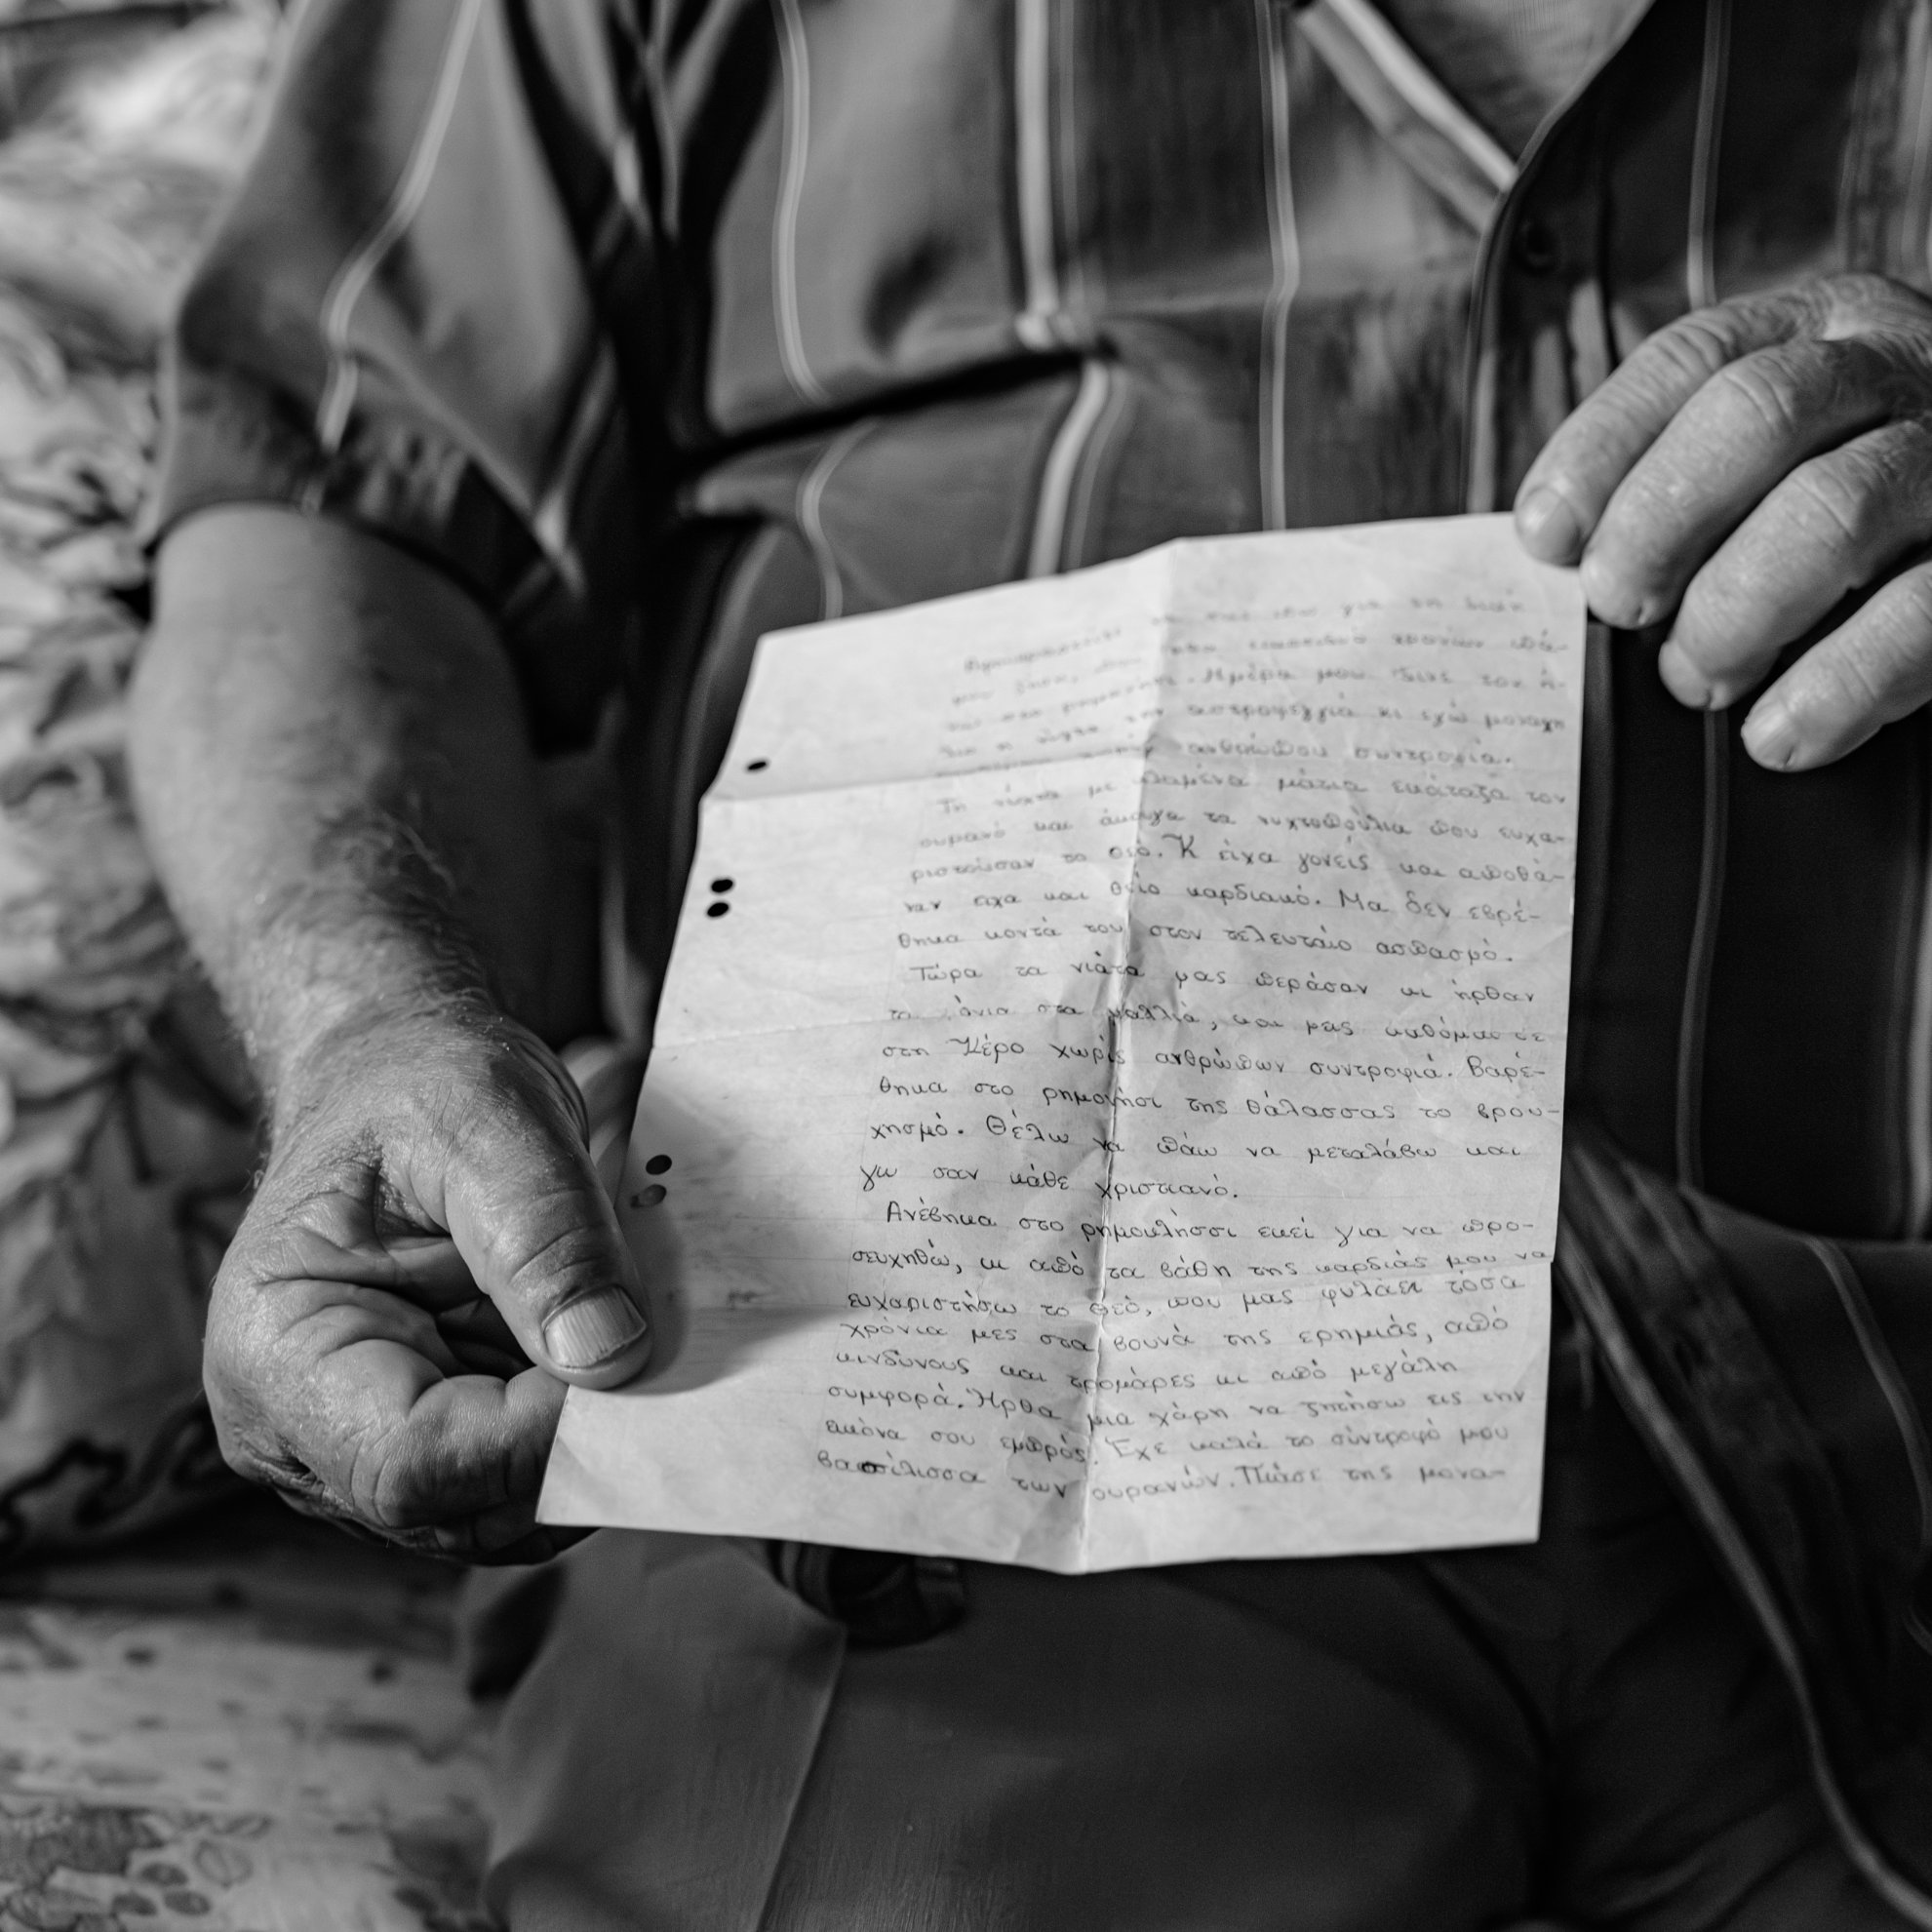 για τη δική
μου
. Ημέρα μου δινε τον ή-
λιο η νύχτα την αστροφεγγιά κι εγώ μοναχη
ανθρώπου συντροφιά.
Τη νύχτα με κλαμένα μάτια εκοίταζα τον
ουρανό και άκουγα τα νυχτοπούλια που ευχα-
ριστούσαν το θεό. Κ είχα γονείς και αποθά-
ναν είχα και θείο καρδιακό. Μα δεν εβρέ-
θηκα κοντά του στον τελευταίο ασπασμό.
Τώρα τα νιάτα μας περάσαν κι ήρθαν
τα στα μαλλιά, και μεις καθόμαστε
στη Κέρο χωρίς ανθρώπων συντροφιά. Βαρέ-
θηκα στο ρημονήσι της θάλασσας το βρου-
χησμό. Θέλω να πάω να μεταλάβω και
γω σαν κάθε χριστιανό.
Ανέβηκα στο ρημοκλήσσι εκεί για να προ-
σευχηθώ, κι από τα βάθη της καρδιάς μου να
ευχαριστήσω το Θεό, που μας φυλάει τόσα
χρόνια μες στα βουνά της ερημιάς, από
κινδύνους και τρομάρες κι από μεγάλη
συμφορά. Ήρθα μια χάρη να ζητήσω εις την
εικόνα σου εμπρός. Έχε καλά το σύντροφό μου
βασίλισσα των ουρανών. Πάψε της μονα-